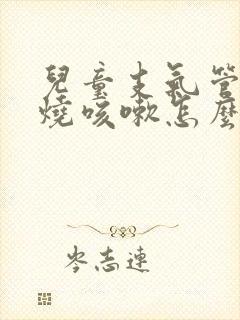 兒童支氣管
燒咳嗽怎麼
岑志連